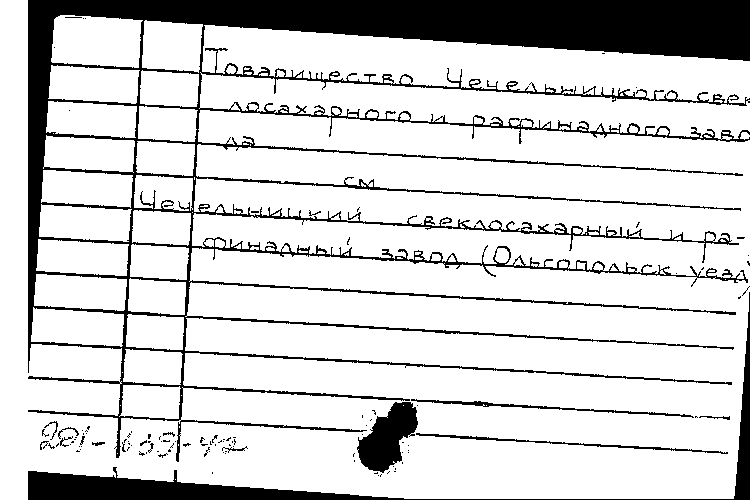 Товарищество Чечельницкого свек
лосахарного и рафинадного заво
да
см
Чечельницкий свеклосахарный и ра-
финадный завод (Ольгопольск уезд)
201-639-42